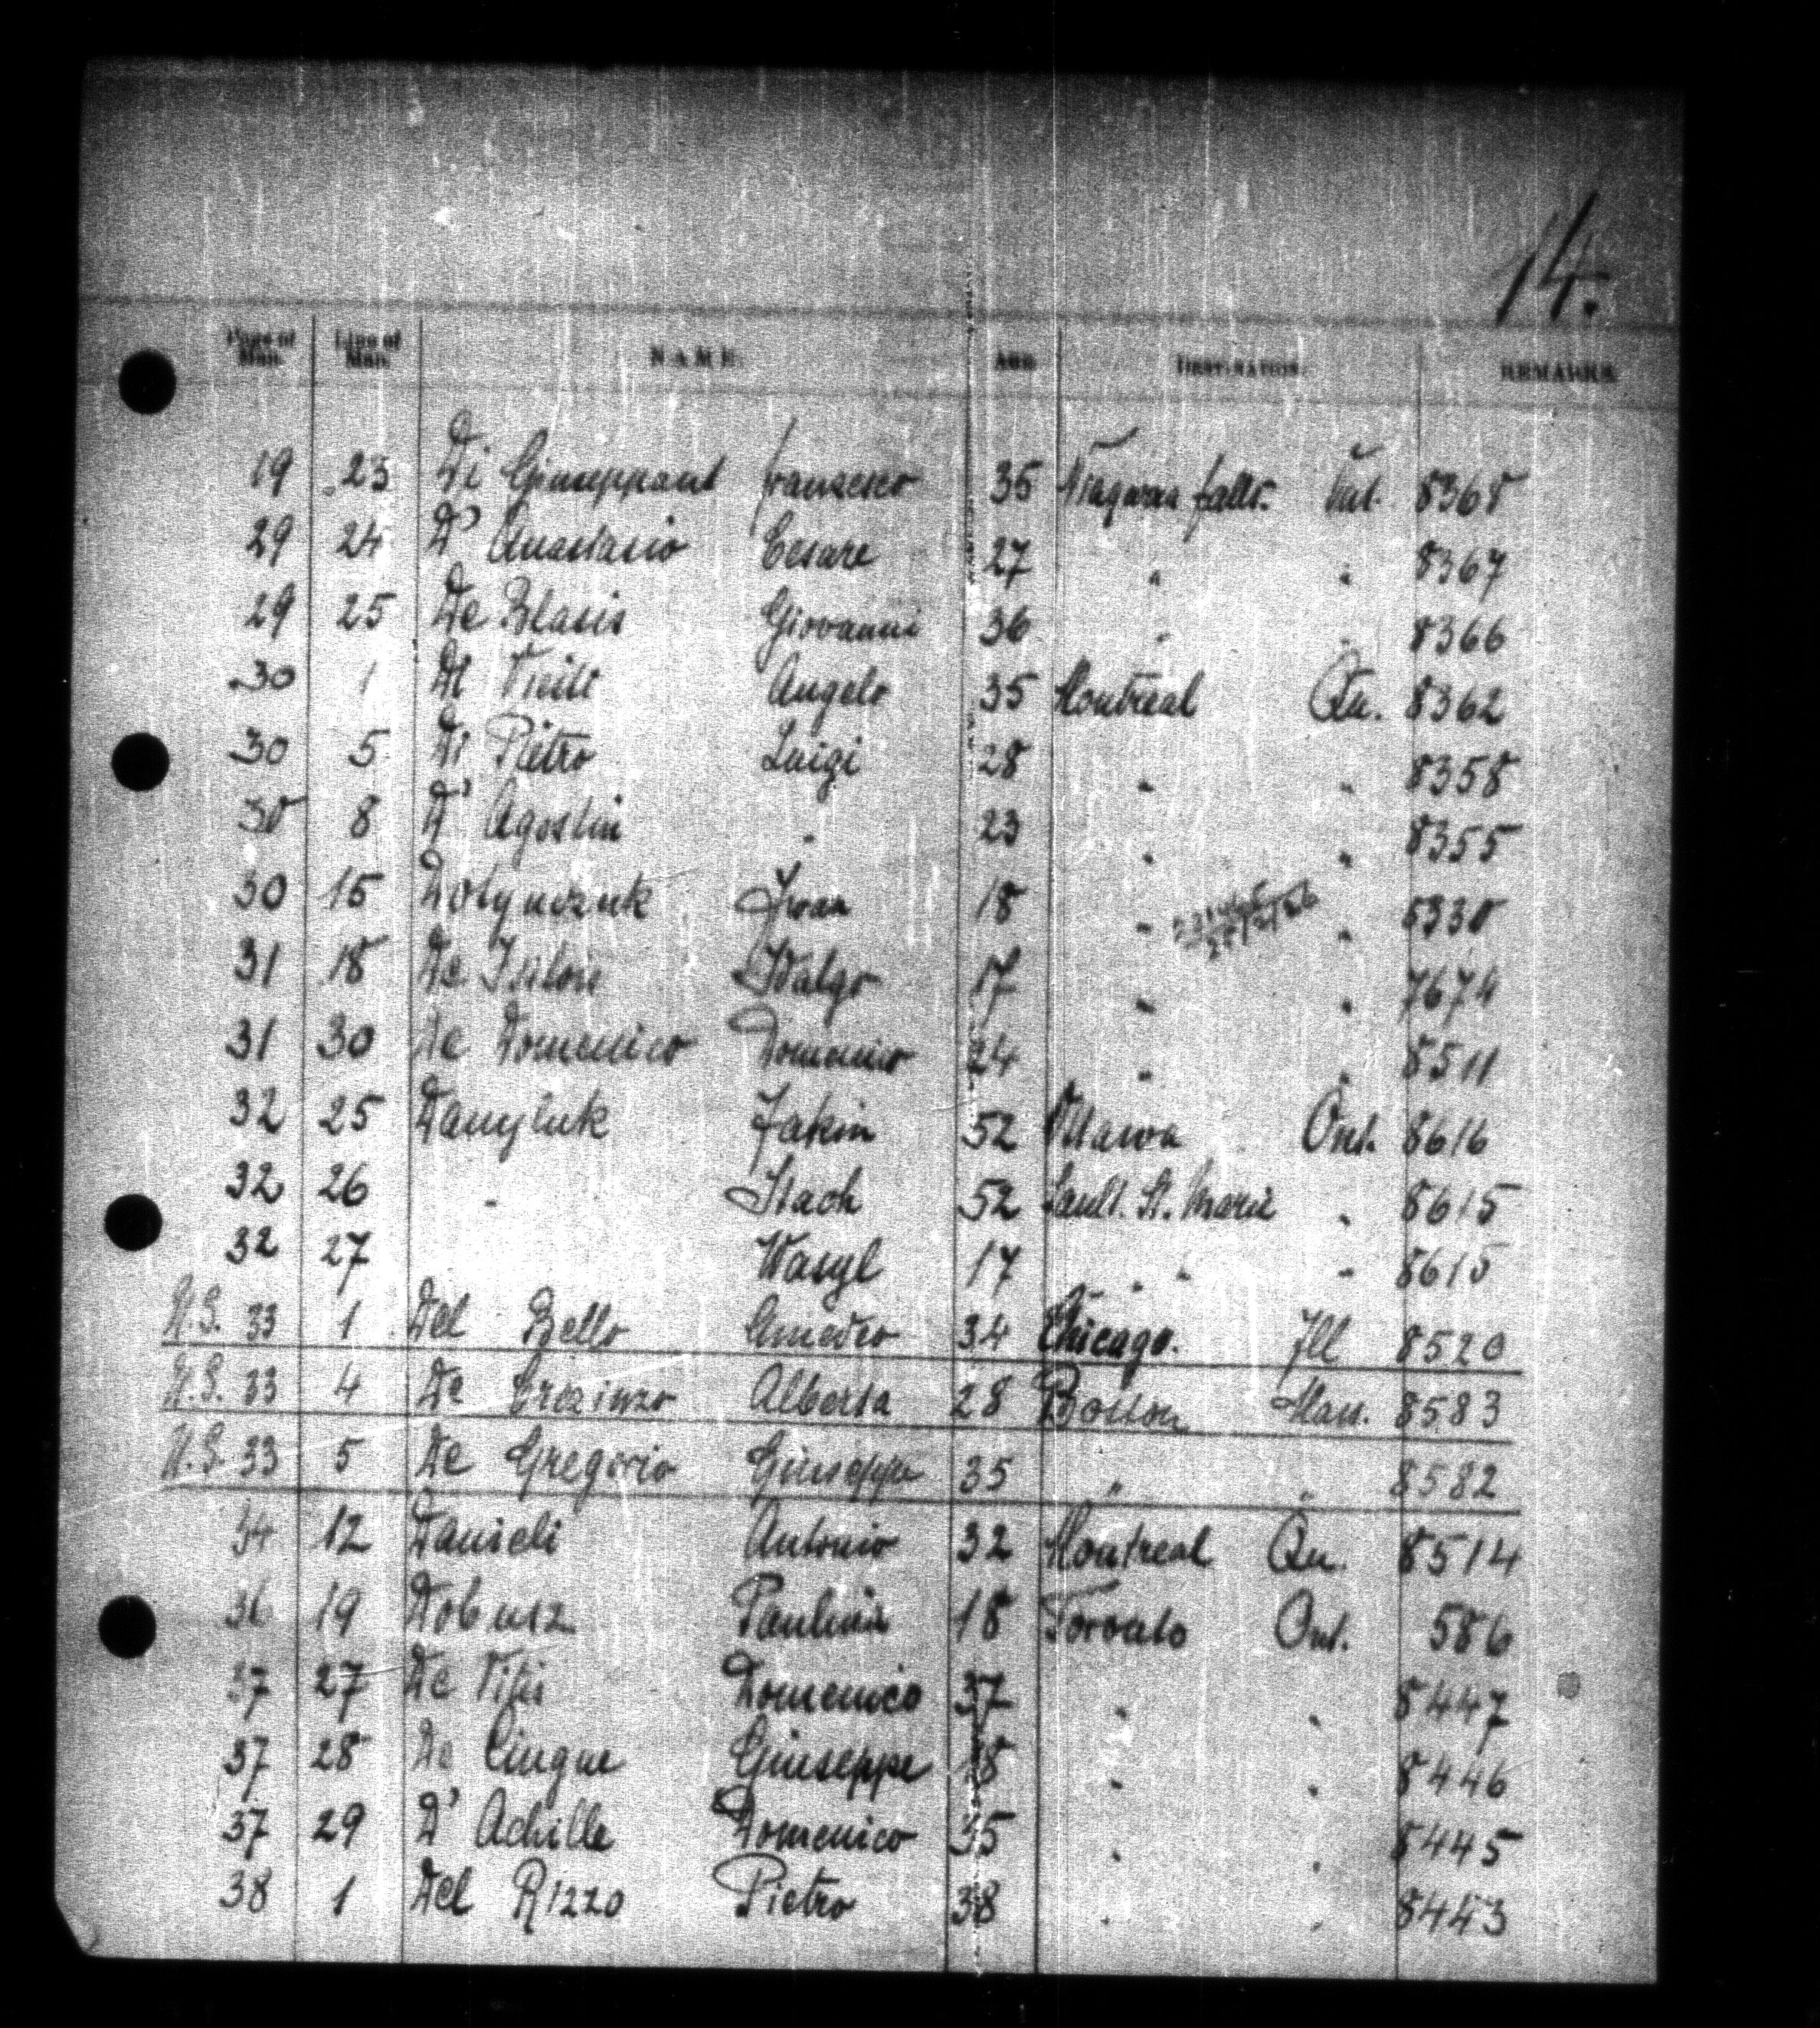 14.
Page of Man. Line of Man. NAME. AGE DESTINATION. REMARKS.
19 23 Di Francesco 35 Niagara falls. Ont. 8368
29 24 D' Anastasio Cesare 27 " " 8367
29 25 De Blasis Giovanni 36 " " 8366
30 1 Angelo 35 Montreal Qu. 8362
30 5 Di Pietro Luigi 28 " " 8358
30 8 D' Agostin " 23 " " 8355
30 15 Iwan 18 " " 8330
31 18 De 17 " " 7674
31 30 De Domenico Domenico 24 " " 8511
32 25 Danyluk Jakin 52 Ottawa Ont. 8616
32 26 " Stach 52 Sault. St. Marie " 8615
32 27 Wasyl 17 " " " 8615
U.S. 33 1 Del Bello Amedeo 34 Chicago. Ill 8520
U.S. 33 4 De Alberta 28 Boston Mass. 8583
U.S. 33 5 De Gregorio Giuseppe 35 " " 8582
34 12 Danieli Antonio 32 Montreal Qu. 8514
36 19 Dobusz Paulina 18 Toronto Ont. 586
37 27 De Vitis Domenico 37 " " 8447
37 28 De Cinque Giuseppe 18 " " 8446
37 29 D' Achille Domenico 35 " " 8445
38 1 Del Rizzo Pietro 38 " " 8443